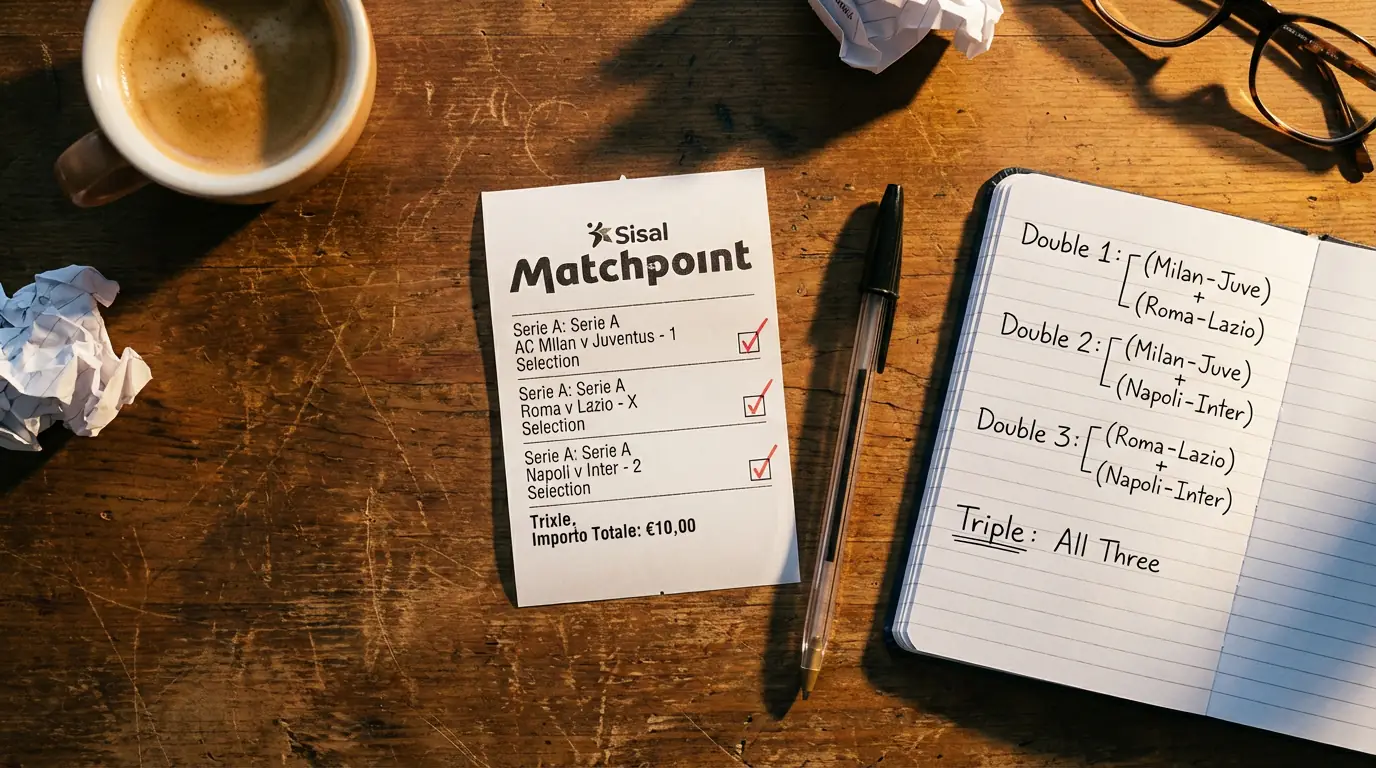 Sisal
Matchpoint
Serie A: Serie A
AC Milan v Juventus - 1
Selection
Serie A: Serie A
Roma v Lazio - X
Selection
Serie A: Serie A
Napoli v Inter - 2
Selection
Trixle,
Importo Totale: €10,00
Double 1: (Milan-Juve)
+
(Roma-Lazio)
Double 2: (Milan-Juve)
+
(Napoli-Inter)
Double 3: (Roma-Lazio)
+
(Napoli-Inter)
Triple: All Three